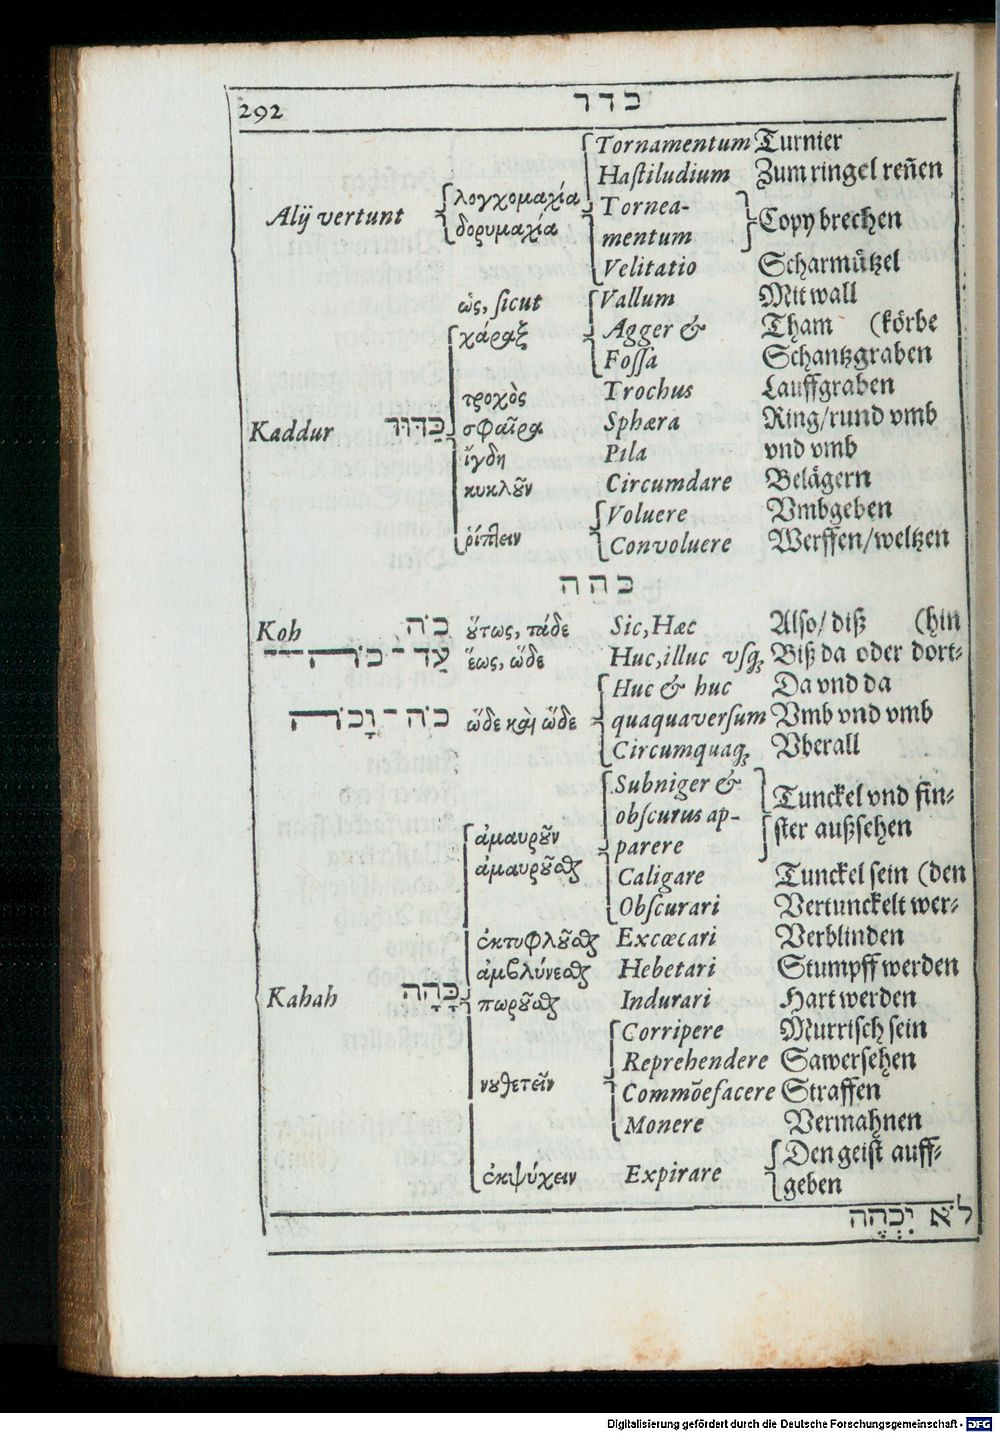 292 כדר
Tornamentum Turnier
Hastiludium Zum ringel reñen
Alij vertunt λογχομαχία Tornea-
δορυμαχία mentum Copy brechen
Velitatio Scharmützel
ὡς, sicut Vallum Mit wall
χάραξ Agger & Tham (körbe
Fossa Schantzgraben
τροχὸς Trochus Lauffgraben
Kaddur כַּדּוּר σφαῖρα Sphæra Ring/rund vmb
ἴγδη Pila vnd vmb
κυκλοῦν Circumdare Belägern
Voluere Vmbgeben
ῥίπτειν Convoluere Werffen/weltzen
כהה
Koh כֹּה οὕτως, τάδε Sic, Hæc Also/ diß (hin
עַד־כֹּה ἕως, ὧδε Huc, illuc vsq; Biß da oder dort-
Huc & huc Da vnd da
כֹּה־וָכֹה ὧδε καὶ ὧδε quaquaversum Vmb vnd vmb
Circumquaq; Vberall
Subniger & Tunckel vnd fin-
obscurus ap- ster außsehen
ἀμαυροῦν parere
ἀμαυροῦσθαι Caligare Tunckel sein (den
Obscurari Vertunckelt wer-
ἐκτυφλοῦσθαι Excæcari Verblinden
ἀμβλύνεσθαι Hebetari Stumpff werden
Kahah כָּהָה πωροῦσθαι Indurari Hart werden
Corripere Murrisch sein
Reprehendere Sawersehen
νουθετεῖν Commõefacere Straffen
Monere Vermahnen
Den geist auff-
ἐκψύχειν Expirare geben
לֹא יִכְהֶה
Digitalisierung gefördert durch die Deutsche Forschungsgemeinschaft - DFG